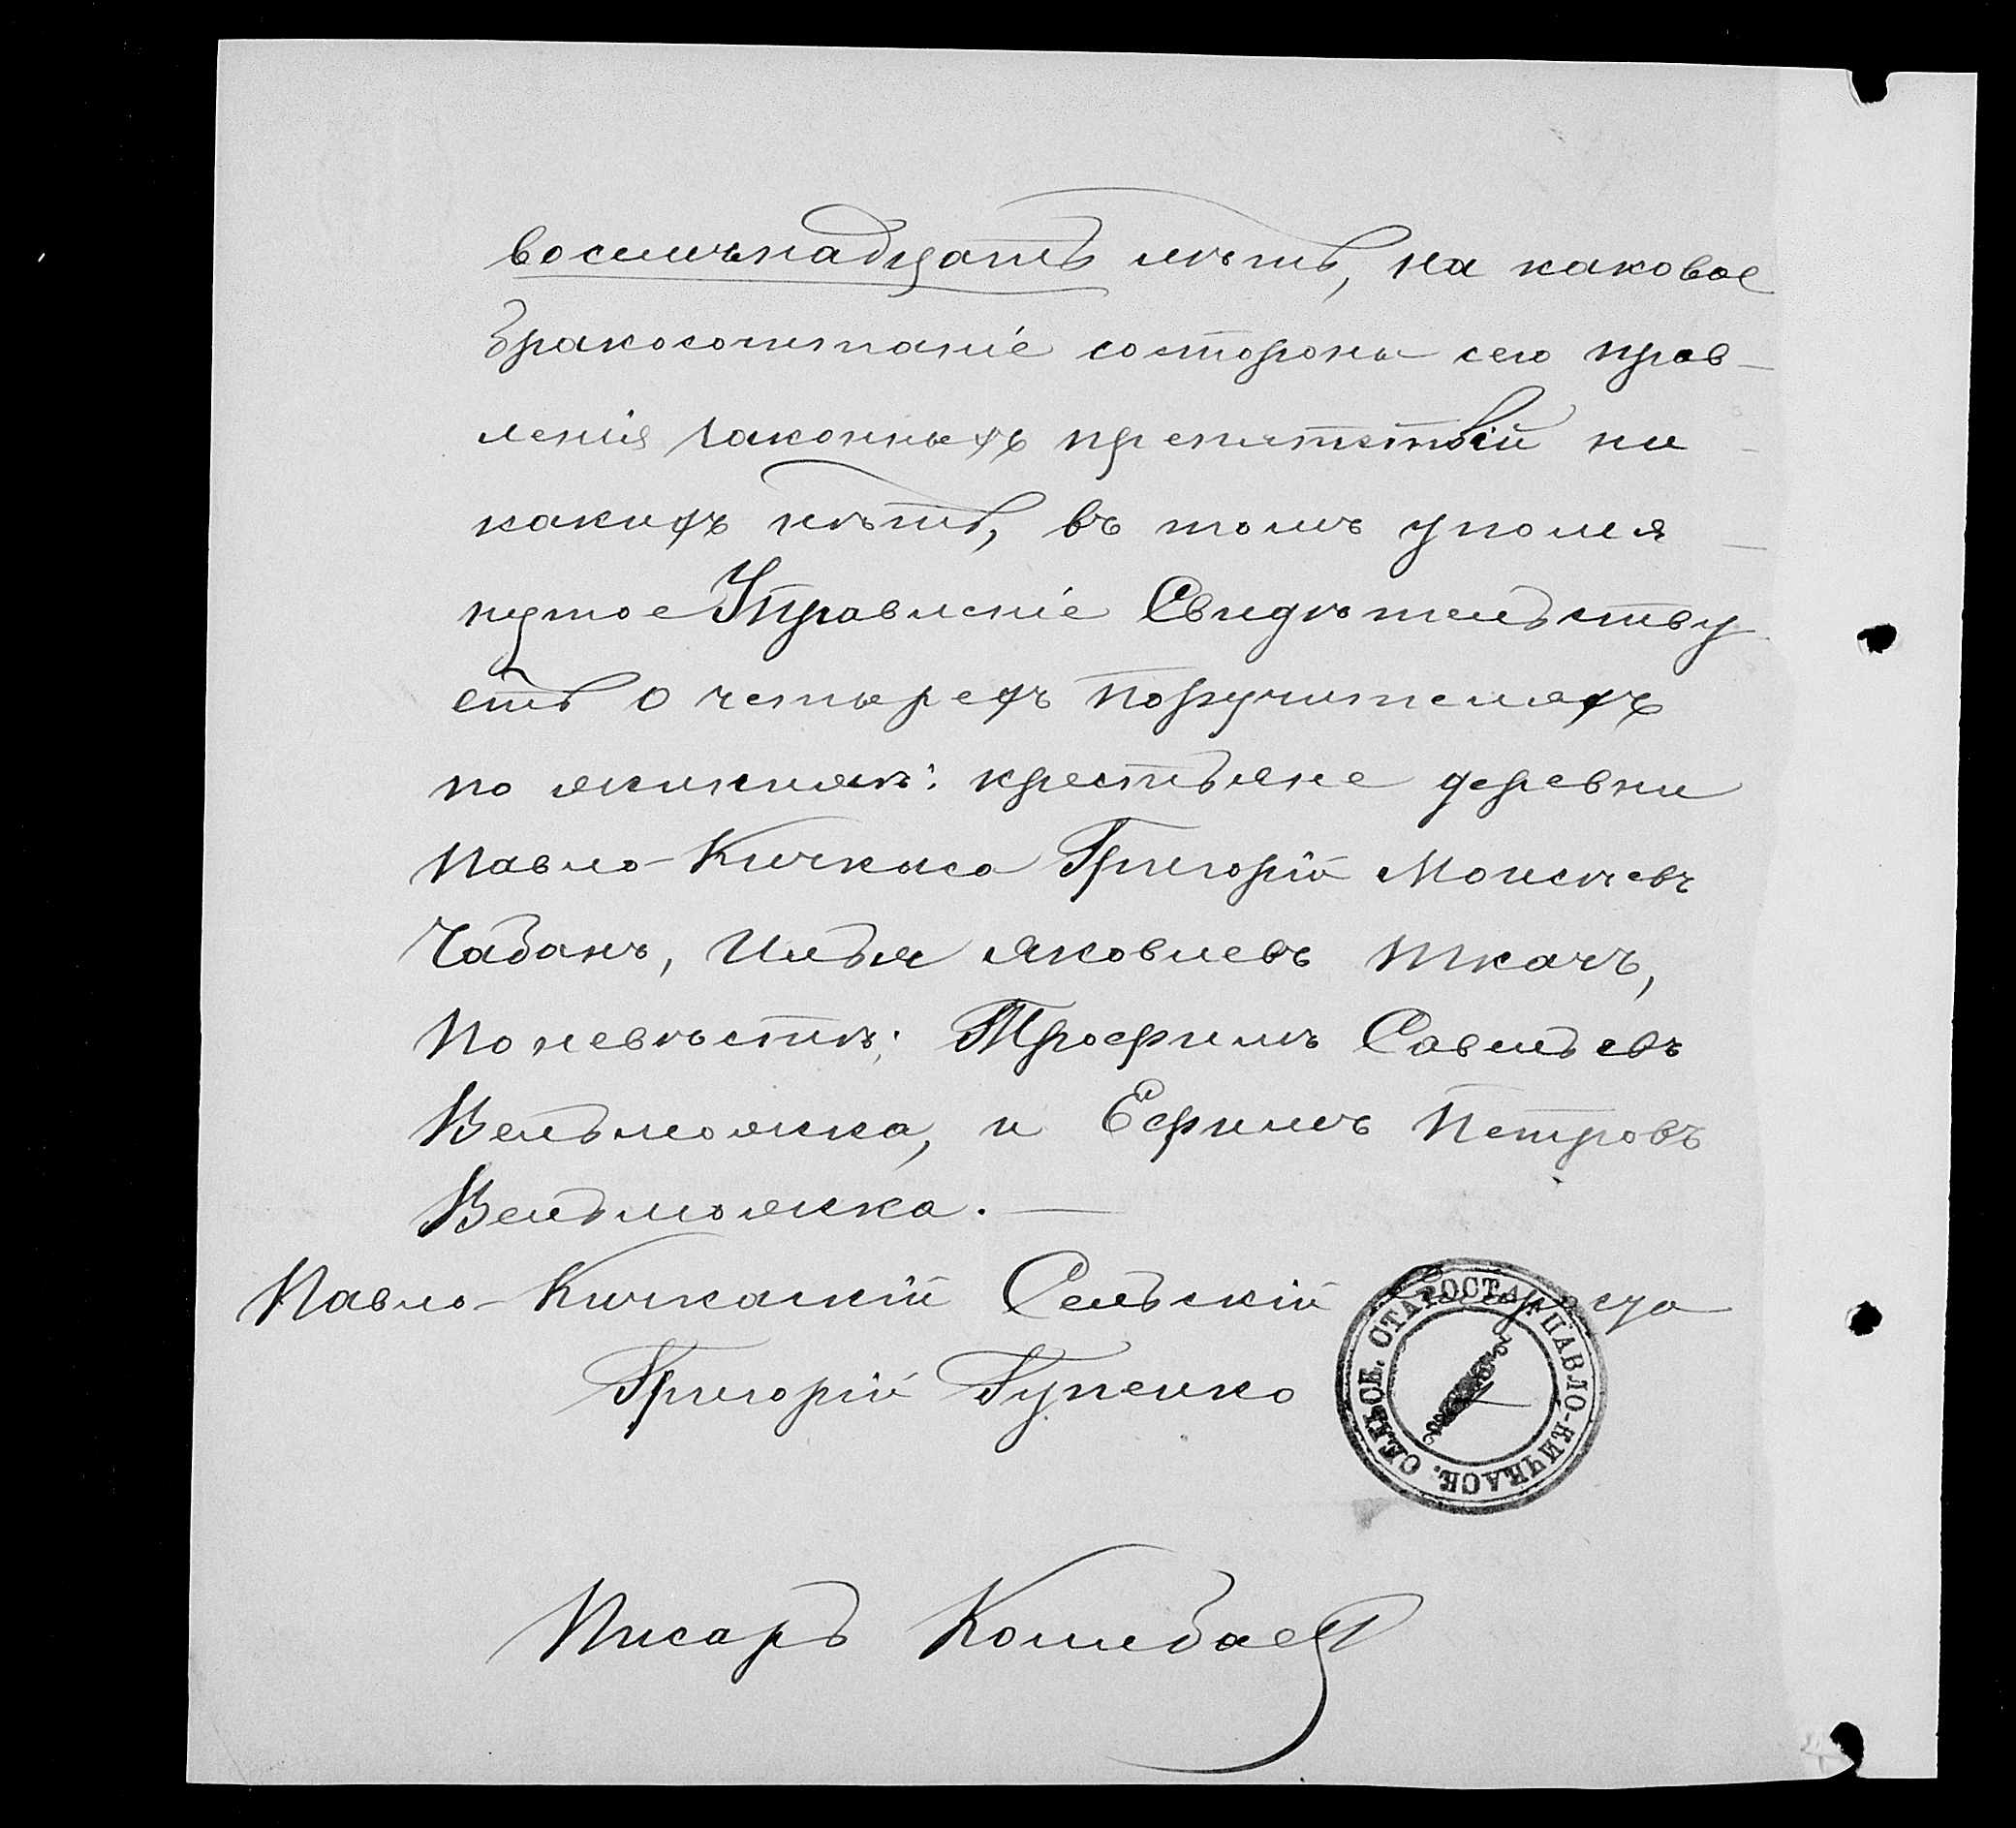 восемьнадцать лѣтъ, на каковое
бракосочитаніе состороны сего прав-
ленія законныхъ препятствій ни-
какихъ нѣтъ, въ томъ упомя-
нутое Управленіе Свидѣтельству-
етъ о четырехъ поручителяхъ
по женихѣ: крестьяне деревни
Павло-Кичкаса Григорій Моисѣевъ
Чабанъ, Илья Яковлевъ Ткачъ,
По невѣстѣ: Трофимъ Савельевъ
Вельможка, и Ефимъ Петровъ
Вельможка. —
Павло-Кичкаскій Сельскій Староста
Григорій Гупенко
СЕЛЬСК. СТАРОСТА ПАВЛО-КИЧКАСК.
Писарь